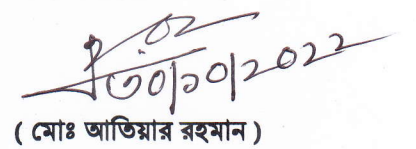 ৩০/১০/২০২২
( মোঃ আতিয়ার রহমান )